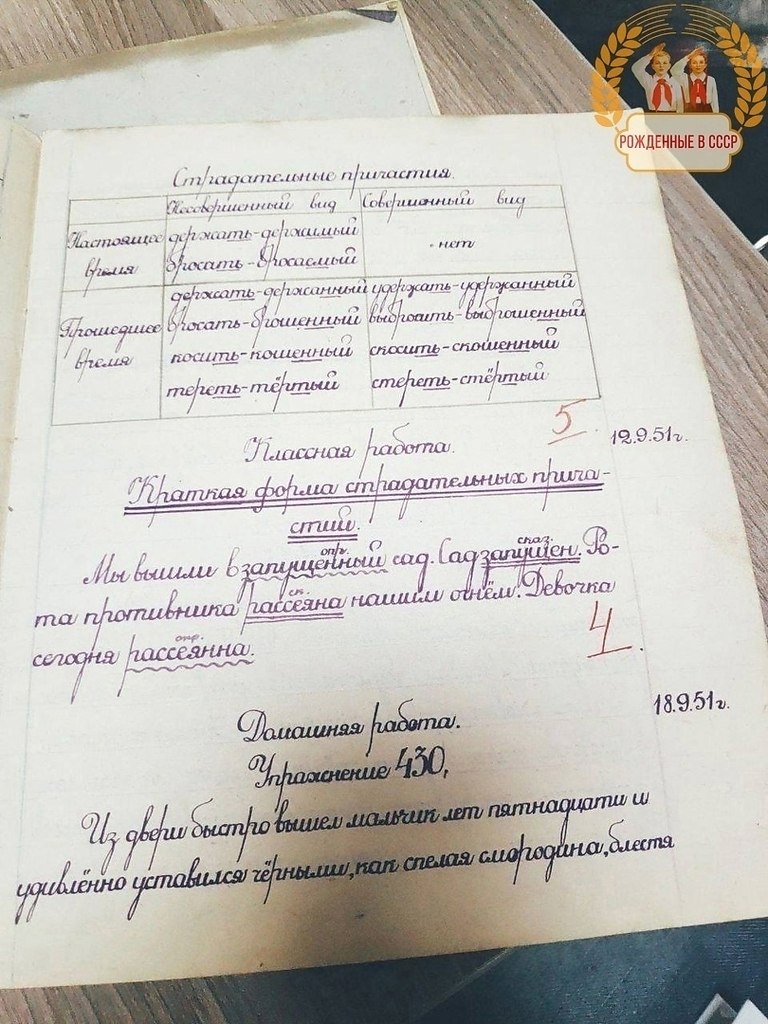 РОЖДЕННЫЕ В СССР
Страдательные причастия.
Несовершенный вид Совершенный вид
Настоящее время
держать-держимый
бросать-бросаемый
нет
Прошедшее время
держать-держанный удержать-удержанный
бросать-брошенный выбросить-выброшенный
косить-кошенный скосить-скошенный
тереть-тёртый стереть-стёртый
5
12.9.51г.
Классная работа.
Краткая форма страдательных прича-
стий.
опр. сказ.
Мы вышли в запущенный сад. Сад запущен. Ро-
ск.
та противника рассеяна нашим огнём. Девочка
опр.
сегодня рассеянна.
4
18.9.51г.
Домашняя работа.
Упражнение 430,
Из двери быстро вышел мальчик лет пятнадцати и
удивлённо уставился чёрными, как спелая смородина, блестя